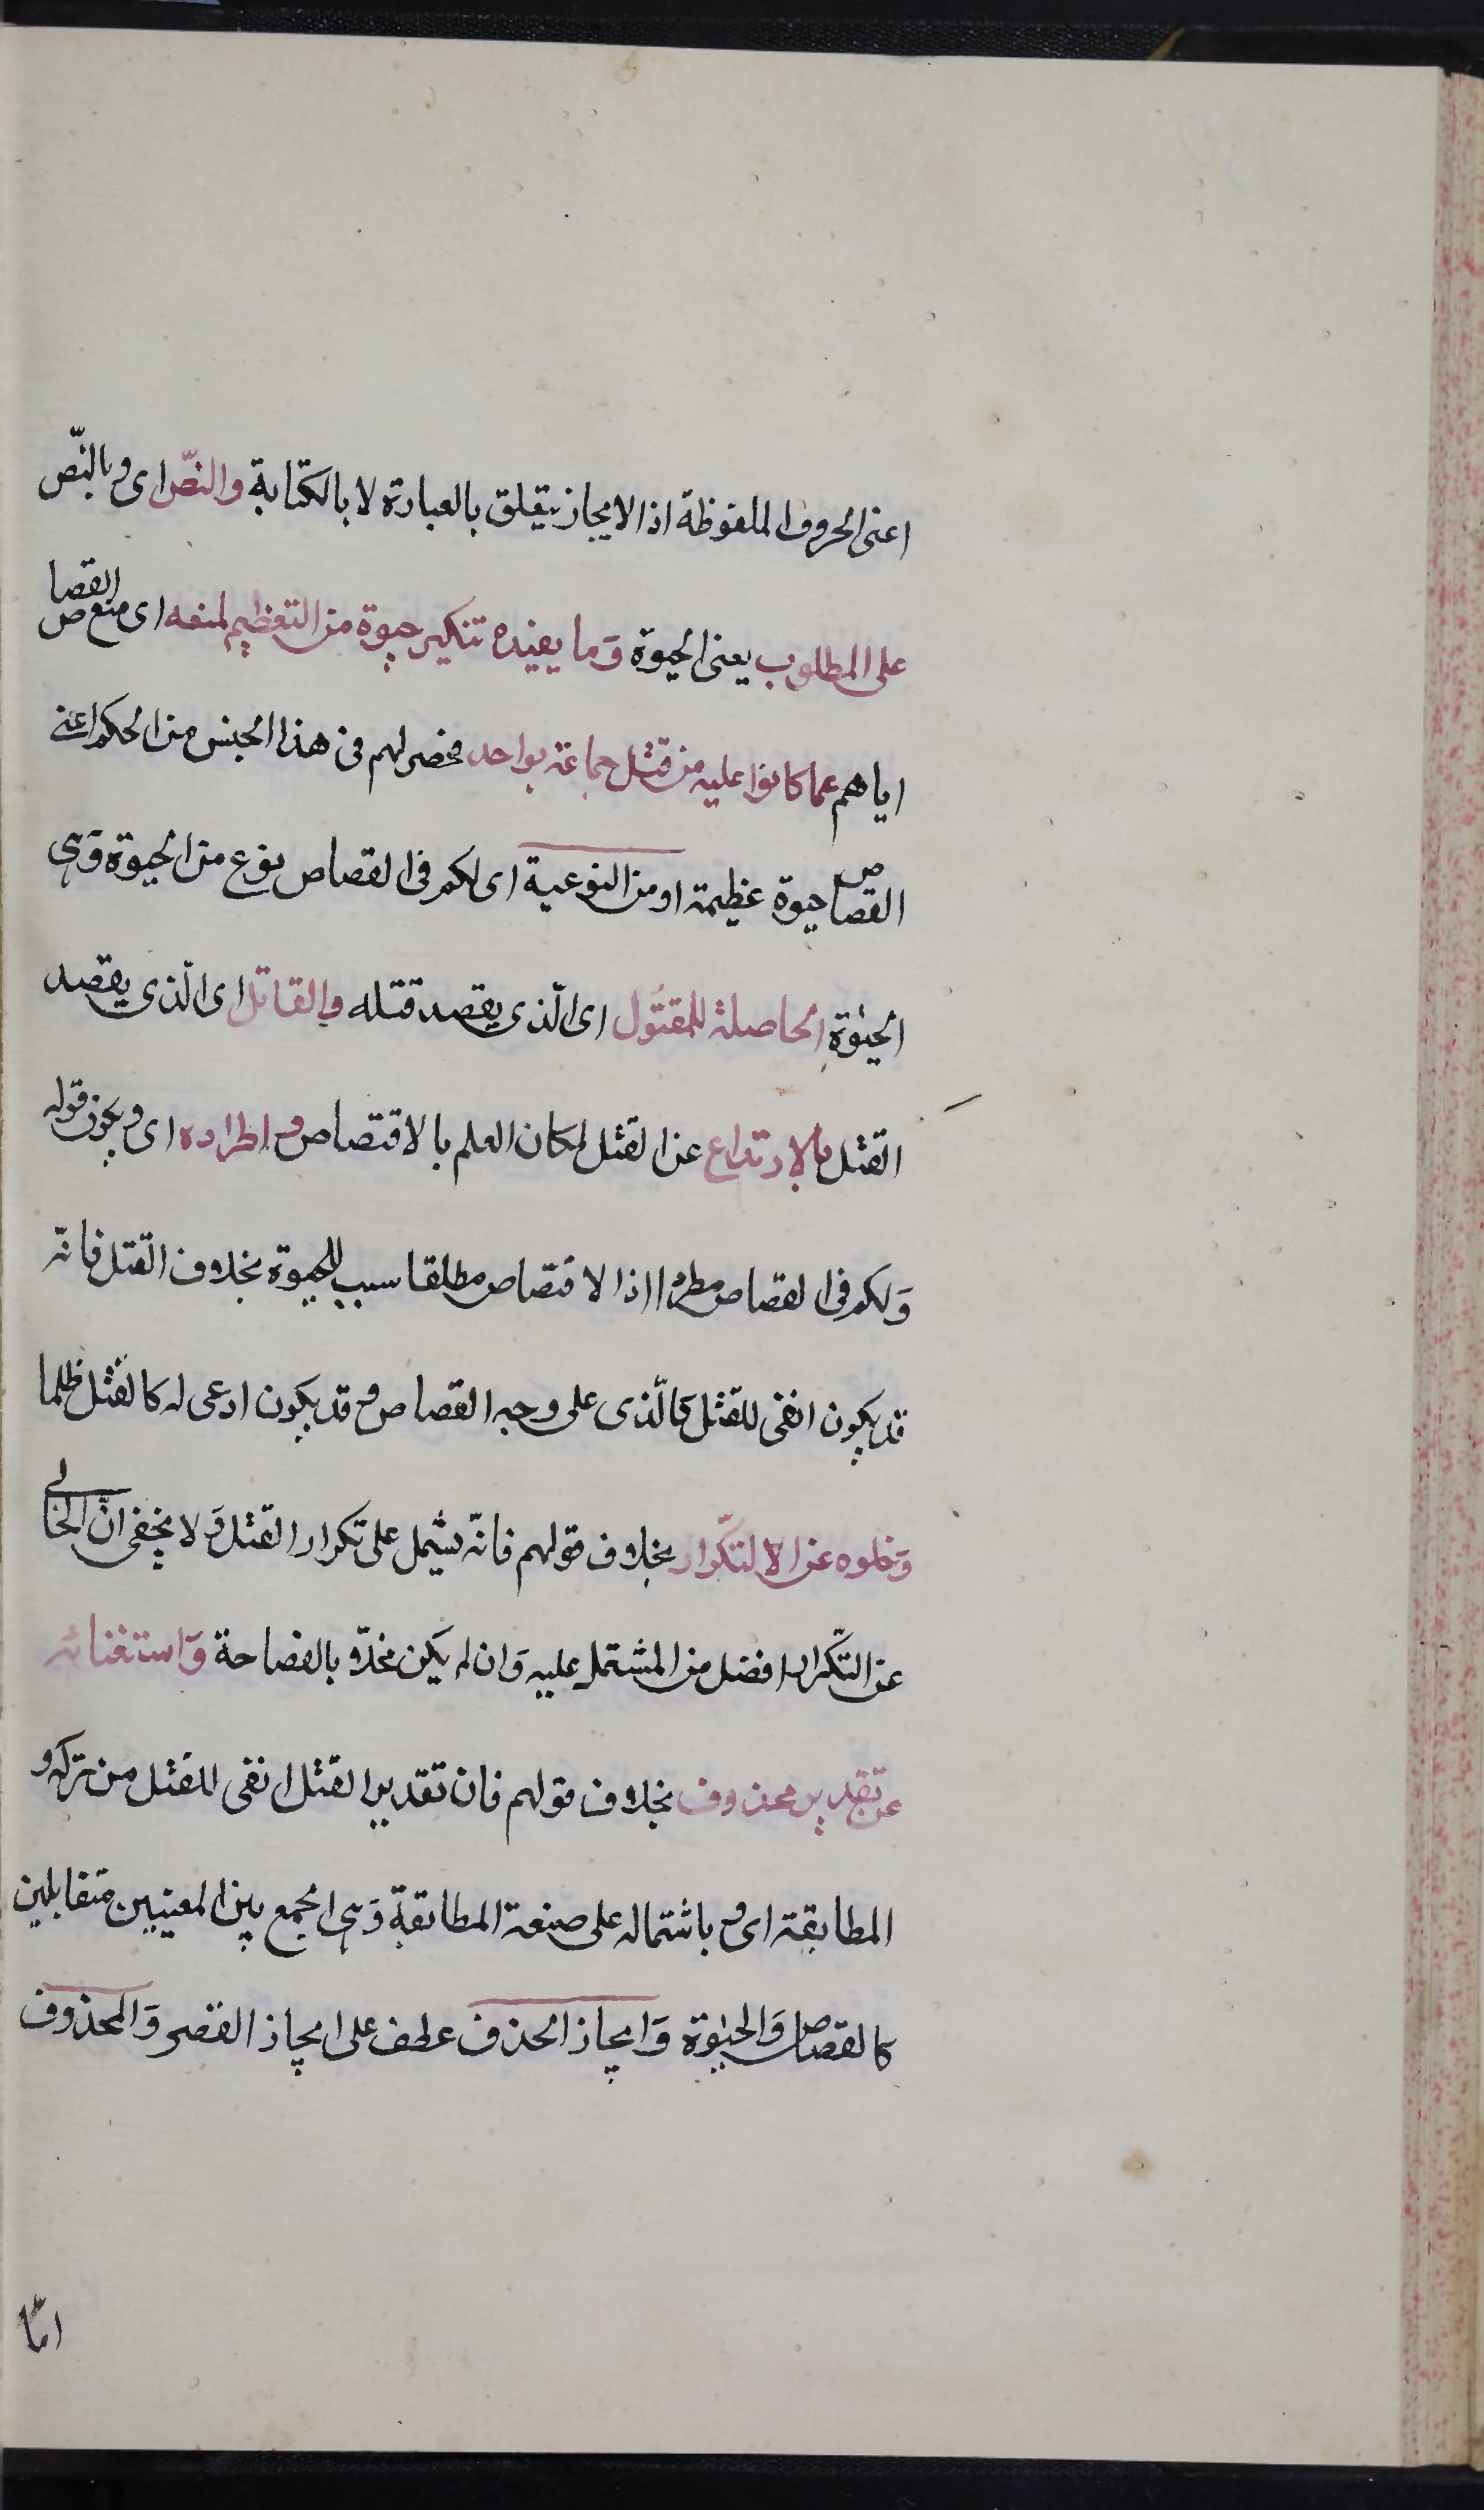 اعنى الحروف الملفوظة اذ الايجاز يتعلق بالعبارة لا بالكتابة والنصّ اى وبالنّص
على المطلوب يعنى الحيوة وَما يفيده تنكير حيوة من التعظيم لمنعه اى منع القصاص
اياهم عما كانوا عليه من قتل جماعة بواحد فحصر لهم فى هذا الجنس من الحكم اعنى
القصاص حيوة عظيمة او من النوعية اى لكم فى القصاص نوع من الحيوة وَهى
الحيوة الحاصلة للمقتُول اى الّذى يقصد قتله والقاتل اى الّذى يقصد
القتل بالارتداع عن القتل لمكان العلم بالاقتصاص واطراده اى وبكون قوله
وَلكم فى القصاص مطردا اذ الاقتصاص مطلقا سبب للحيوة بخلاف القتل فانّه
قد يكون انفى للقتل كالّذى على وجه القصاص وقد يكون ادعى له كالقتل ظلما
وَخلوه عن الالتكّرار بخلاف قولهم فانّه يشمل على تكرار القتل وَلا يخفى انّ الخالى
عن التكّرار افضل من المشتمل عليه وَان لم يكن مخلّا بالفصاحة وَاستغنائه
عن تقدير محذوف بخلاف قولهم فان تقديره القتل انفى للقتل من تركه و
المطابقة اى وباشتماله على صنعة المطابقة وَهى الجمع بين المعنيين متقابلين
كالقصاص وَالحيوة وَايجاز الحذف عطف على ايجاز القصر وَالمحذوف
امّا